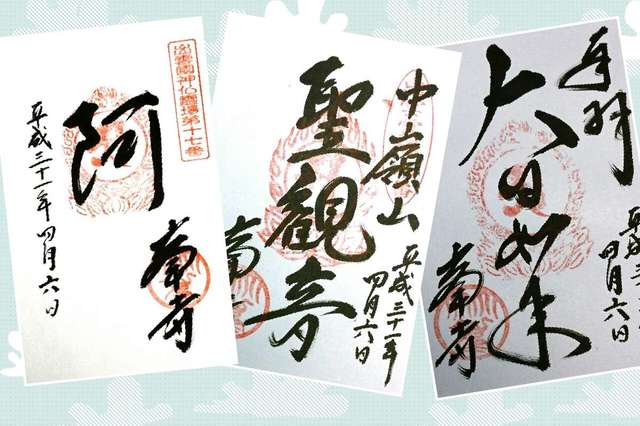 出雲國神仏霊場第十七番
阿
平成三十一年四月六日
峯寺
中嶺山
聖観音
平成三十一年
四月六日
峯寺
奉拝
大日如来
平成三
四月六日
峯寺